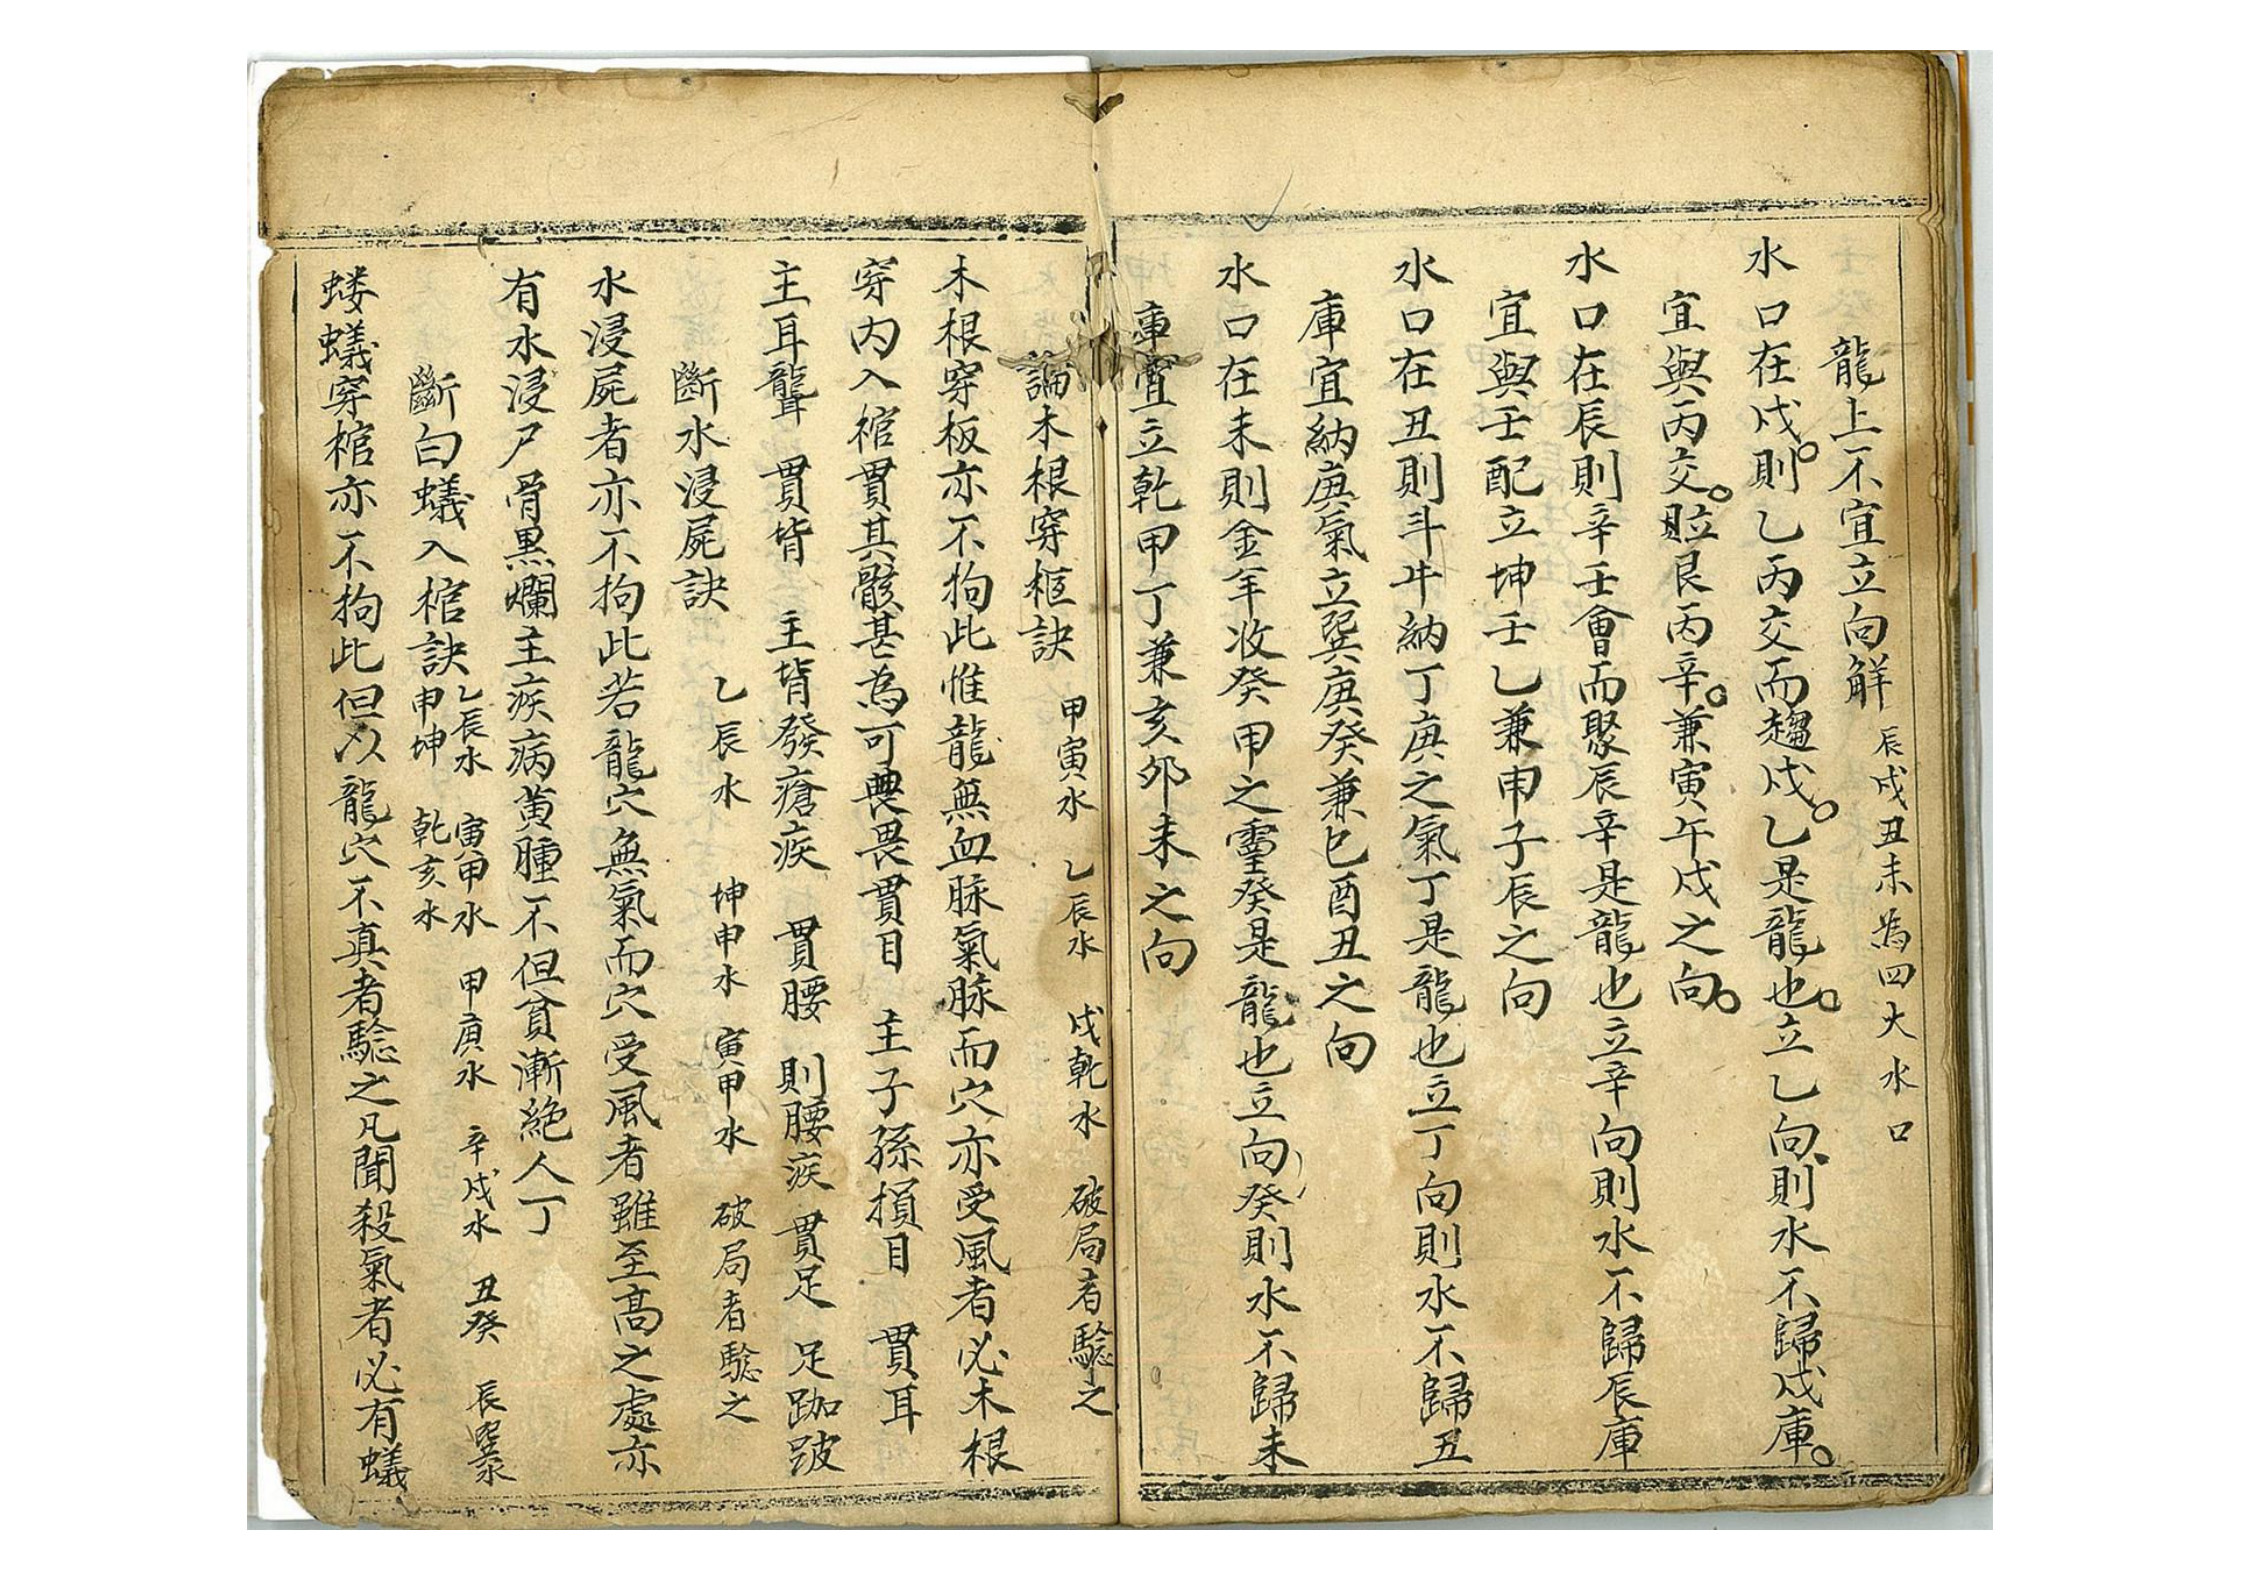 龍上不宜立向解 辰戌丑未為四大水口
水口在戌則乙丙交而趨戌乙是龍也立乙向則水不歸戌庫
宜與丙交 艮丙辛兼寅午戌之向
水口在辰則辛壬會而聚辰辛是龍也立辛向則水不歸辰庫
宜與壬配立坤壬乙兼申子辰之向
水口在丑則斗牛納丁庚之氣丁是龍也立丁向則水不歸丑
庫宜納庚氣立巽庚癸兼巳酉丑之向
水口在未則金羊收癸甲之靈癸是龍也立向癸則水不歸未
庫宜立乾甲丁兼亥卯未之向
論木根穿柩訣 甲寅水 乙辰水 戌乾水 破局者驗之
木根穿板亦不拘此惟龍無血脉氣脉而穴亦受風者必木根
穿内入棺貫其骸甚為可畏畏貫目 主子孫損目 貫耳
主耳聾 貫背 主背發瘡疾 貫腰 則腰疾 貫足 足跏跛
斷水浸屍訣 乙辰水 坤申水 寅甲水 破局者驗之
水浸屍者亦不拘此若龍穴無氣而穴受風者雖至高之處亦
有水浸尸骨黑爛主疾病黄腫不但貧漸絶人丁
斷白蟻入棺訣 乙辰水 寅甲水 甲庚水 辛戌水 丑癸 辰巽水
申坤 乾亥水
螻蟻穿棺亦不拘此但以龍穴不真者驗之凡聞殺氣者必有蟻